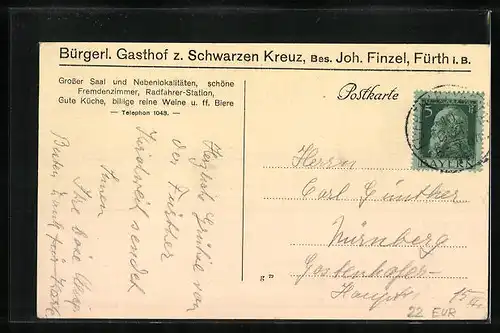 Bürgerl. Gasthof z. Schwarzen Kreuz, Bes. Joh. Finzel, Fürth i. B.
Großer Saal und Nebenlokalitäten, schöne
Fremdenzimmer, Radfahrer-Station,
Gute Küche, billige reine Weine u. ff. Biere
— Telephon 1048. —
Postkarte
5
BAYERN
Herrn
Carl Günther
Nürnberg
Gostenhofer-
Haupt
Grüße von
der Fürther
Kirchweih sendet
Ihnen
Ihre
Besten Dank für Karte
22 EUR